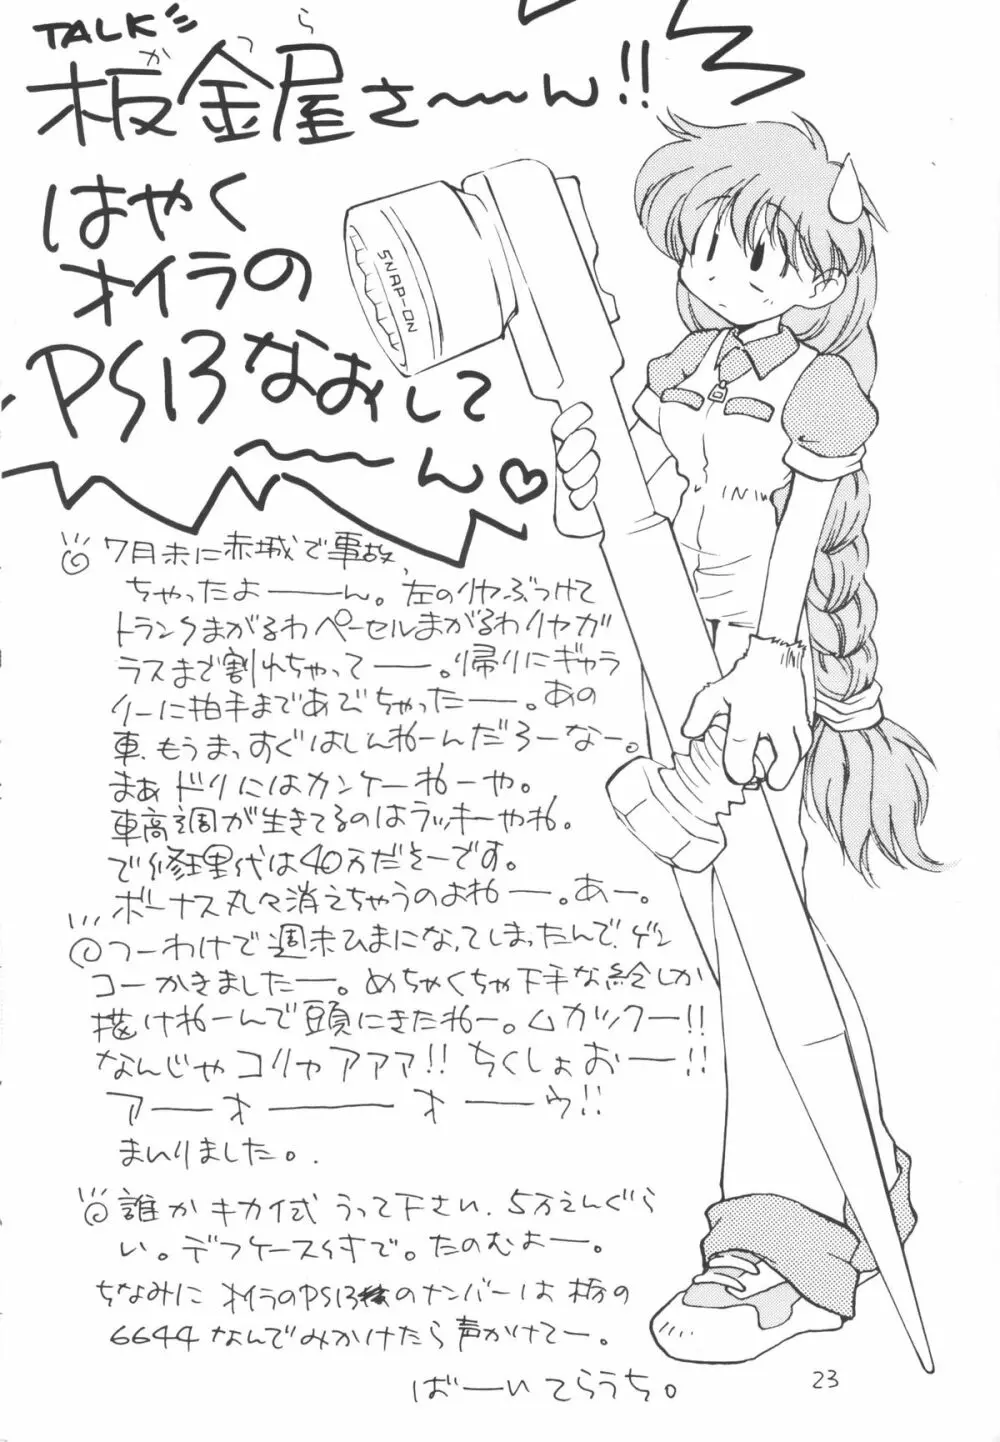 TALK
かつら
板金屋さ〜〜ん!!
はやく
オイラの
PS13なおして
〜〜〜ん♡
SNAP-ON
◎7月末に赤城で事故、
ちゃったよーーん。左のリヤぶつけて
トランクまがるわペーセルまがるわリヤガ
ラスまで割れちゃってーー。帰りにギャラ
リーに拍手まであびちゃったーー。あの
車、もうまっすぐはしんねーんだろーなー。
まぁドリにはカンケーねーや。
車高調が生きてるのはラッキーやね。
で修理代は40万だそーです。
ボーナス丸々消えちゃうのよねーー。あー。
◎つーわけで週末ひまになってしまったんで、ゲン
コーかきましたーー。めちゃくちゃ下手な絵しか
描けねーんで頭にきたねー。ムカックー!!
なんじゃコリャアァァ!! ちくしょおーー!!
アーーオーーーーオーーウ!!
まいりました。
◎誰かキカイ式うって下さい、5万えんぐら
い。デフケース付で。たのむよーー。
ちなみにオイラのPS13のナンバーは栃の
6644なんでみかけたら声かけてー。
ばーーい てらうち。
23